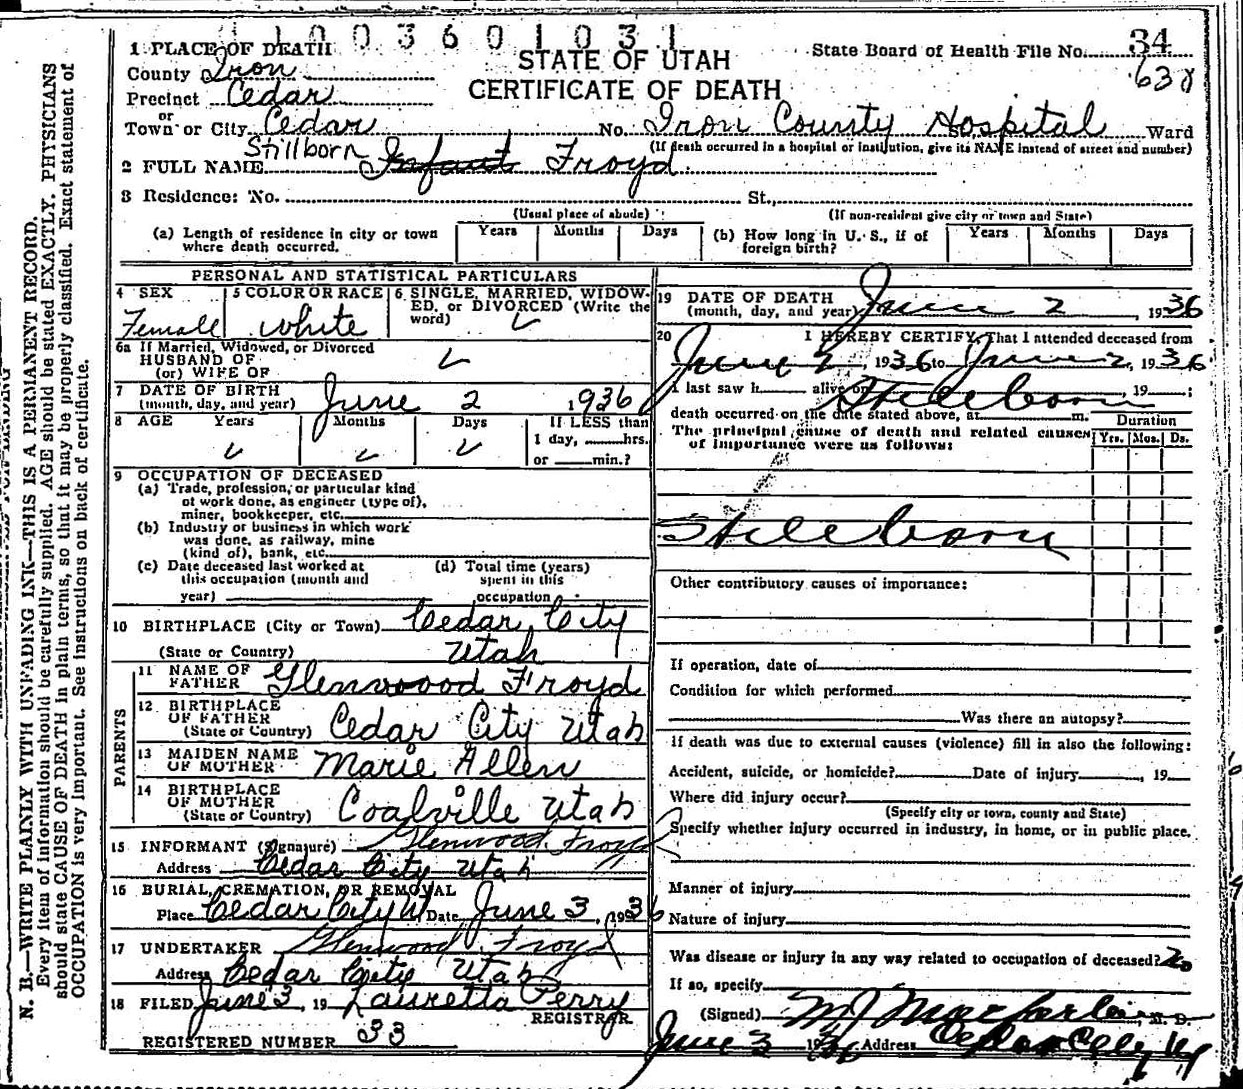 1 1 0 0 3 6 0 1 0 3 1
1 PLACE OF DEATH
STATE OF UTAH
CERTIFICATE OF DEATH
State Board of Health File No. 34
630
County Iron
Precinct Cedar
or
Town or City Cedar No. Iron County Hospital Ward
(If death occurred in a hospital or institution, give its NAME instead of street and number)
Stillborn
2 FULL NAME Infant Froyd
3 Residence: No. St.,
(Usual place of abode) (If non-resident give city or town and State)
(a) Length of residence in city or town where death occurred. Years Months Days (b) How long in U. S., if of foreign birth? Years Months Days
PERSONAL AND STATISTICAL PARTICULARS
4 SEX 5 COLOR OR RACE 6 SINGLE, MARRIED, WIDOW-
ED, or DIVORCED (Write the
word)
Female white
6a If Married, Widowed, or Divorced
HUSBAND OF
(or) WIFE OF
7 DATE OF BIRTH
(month, day, and year) June 2 1936
8 AGE Years Months Days If LESS than
1 day, hrs.
or min.?
9 OCCUPATION OF DECEASED
(a) Trade, profession, or particular kind
of work done, as engineer (type of),
miner, bookkeeper, etc.
(b) Industry or business in which work
was done, as railway, mine
(kind of), bank, etc.
(c) Date deceased last worked at
this occupation (month and
year)
(d) Total time (years)
spent in this
occupation
10 BIRTHPLACE (City or Town) Cedar City
(State or Country) Utah
PARENTS
11 NAME OF
FATHER Glenwood Froyd
12 BIRTHPLACE
OF FATHER
(State or Country) Cedar City Utah
13 MAIDEN NAME
OF MOTHER Marie Allen
14 BIRTHPLACE
OF MOTHER
(State or Country) Coalville Utah
15 INFORMANT (Signature) Glenwood Froyd
Address Cedar City Utah
16 BURIAL, CREMATION, OR REMOVAL
Place Cedar City U Date June 3, 1936
17 UNDERTAKER Glenwood Froyd
Address Cedar City Utah
18 FILED June 3, 19 Lauretta Perry
REGISTRAR
REGISTERED NUMBER 33
19 DATE OF DEATH
(month, day, and year) June 2, 1936
20 I HEREBY CERTIFY, That I attended deceased from
June 2, 1936 to June 2, 1936
I last saw h alive on Stillborn 19 ;
death occurred on the date stated above, at m.
The principal cause of death and related causes
of importance were as follows:
Duration
Yrs. Mos. Ds.
Stillborn
Other contributory causes of importance:
If operation, date of
Condition for which performed
Was there an autopsy?
If death was due to external causes (violence) fill in also the following:
Accident, suicide, or homicide? Date of injury , 19
Where did injury occur?
(Specify city or town, county and State)
Specify whether injury occurred in industry, in home, or in public place.
Manner of injury
Nature of injury
Was disease or injury in any way related to occupation of deceased? No
If so, specify
(Signed) M J Macfarlane, M. D.
June 3 1936 Address Cedar City Ut
N. B.—WRITE PLAINLY WITH UNFADING INK—THIS IS A PERMANENT RECORD.
Every item of information should be carefully supplied. AGE should be stated EXACTLY. PHYSICIANS
should state CAUSE OF DEATH in plain terms, so that it may be properly classified. Exact statement of
OCCUPATION is very important. See instructions on back of certificate.